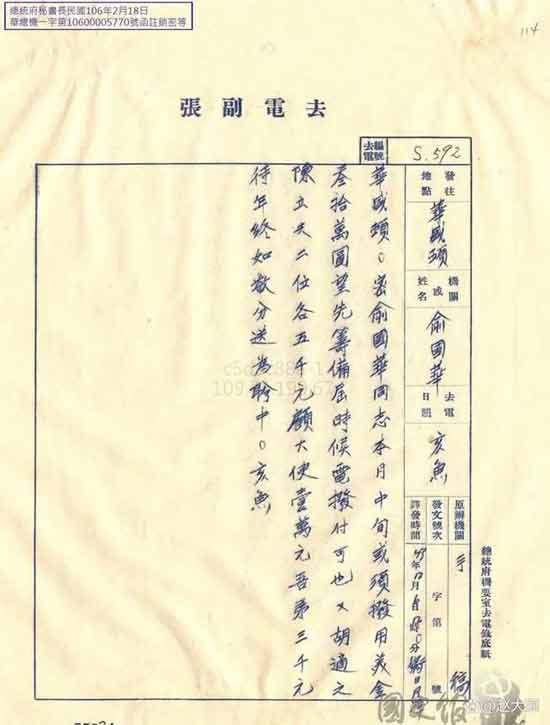 總統府秘書長民國106年2月18日
華總機一字第10600005770號函註銷密等
114
去電副張
去電編號
S.592
發往地點
華盛頓
機關或姓名
俞國華
去電日韻
亥魚
原辦機關
手稿
發文號次
字第 號
譯發時間
華盛頓。密俞國華同志本月中旬或須撥用美金
叁拾萬圓望先籌備屆時候電撥付可也又胡適之
陳立夫二位各五千元顧大使壹萬元吾弟三千元
待年終如數分送為盼中。亥魚
總統府機要室去電稿底紙
@赵大夫